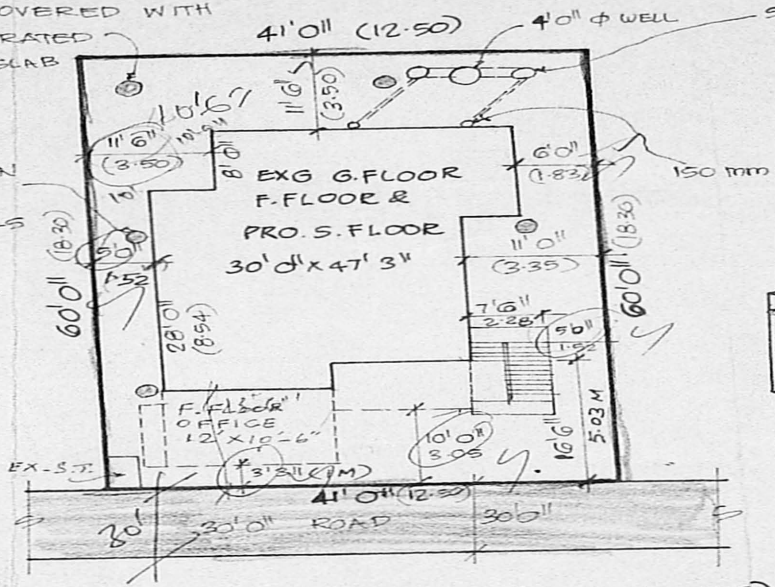 OVERED WITH
RATED
SLAB
41'0" (12.50)
4'0" φ WELL
10'6"
11'6"
(3.50)
11'6"
(3.50)
8'0"
EXG G.FLOOR
F.FLOOR &
PRO. S. FLOOR
30'0" X 47'3"
6'0"
(1.83)
150 mm
5'0"
1.52
60'0" (18.30)
28'0"
(8.54)
11'0"
(3.35)
60'0" (18.30)
7'6"
2.28
5'0"
1.52
F. FLOOR
OFFICE
12' X 10'-6"
10'0"
3.05
16'6"
5.03 M
EX-S.T.
3'3" (1M)
41'0" (12.50)
30'
30'0" ROAD
30'0"